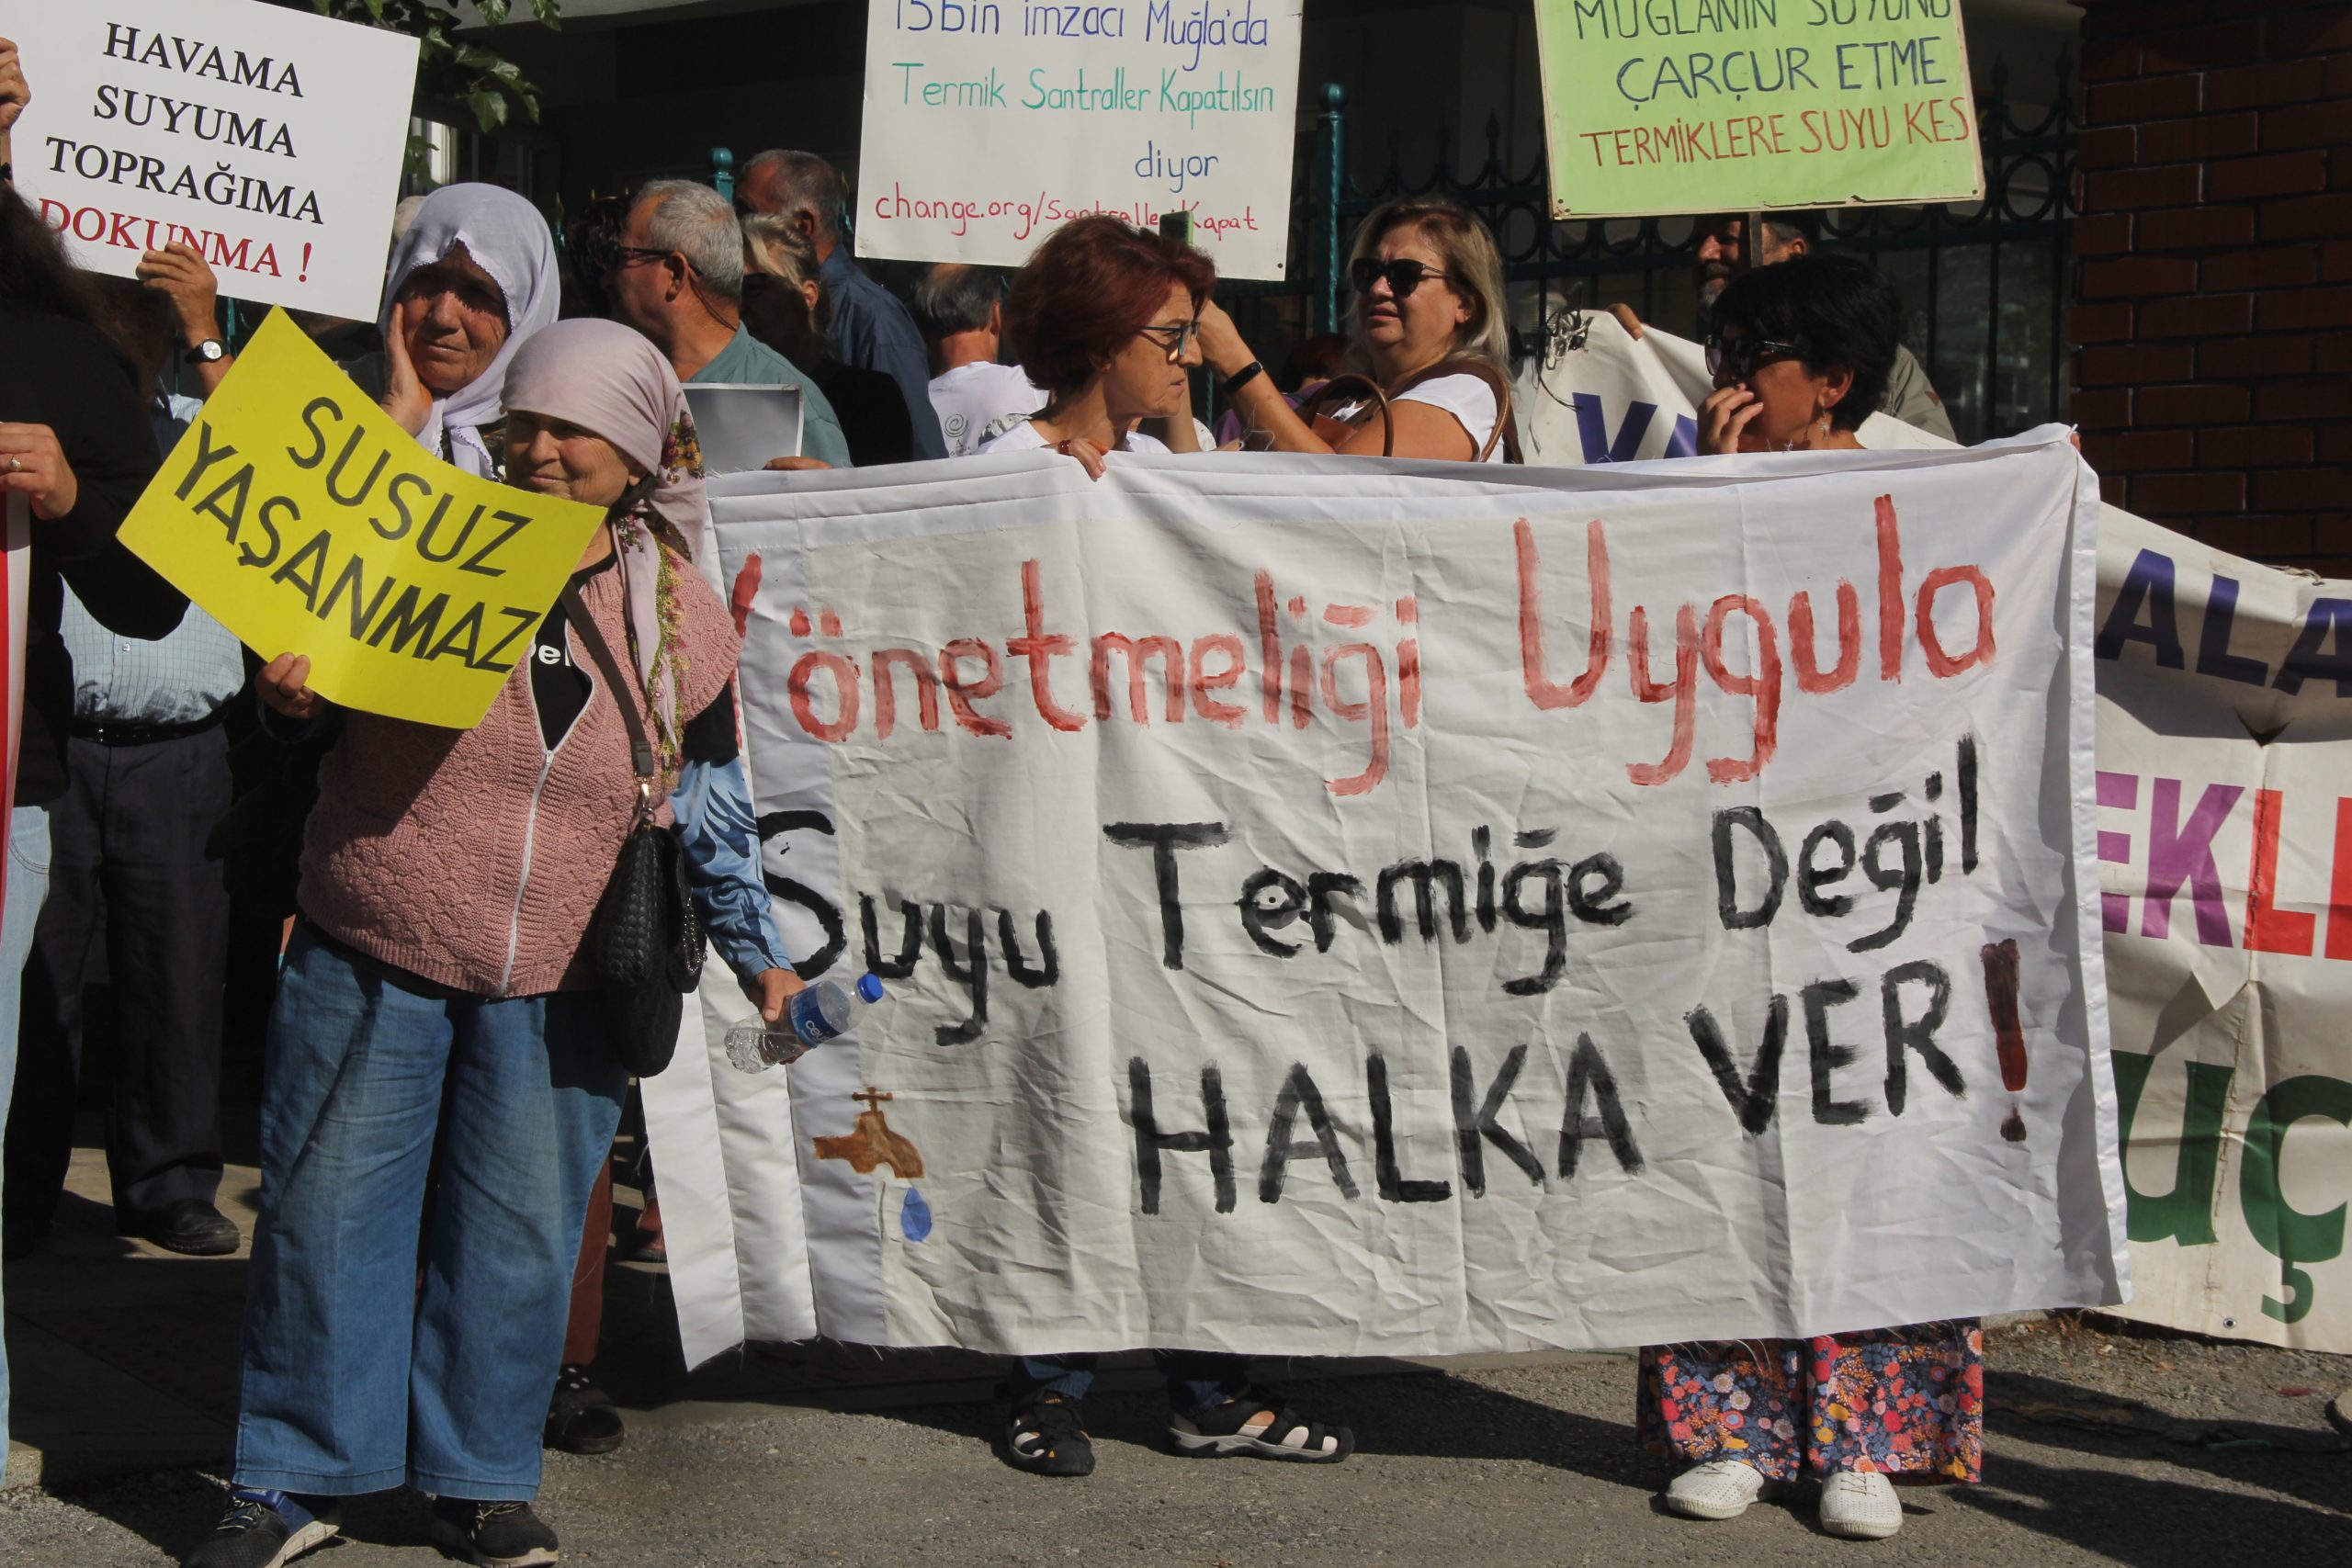 HAVAMA
SUYUMA
TOPRAĞIMA
DOKUNMA !
15bin imzacı Muğla'da
Termik Santraller Kapatılsın
diyor
change.org/SantralleriKapat
MUĞLANIN SUYUNU
ÇARÇUR ETME
TERMİKLERE SUYU KES
SUSUZ
YAŞANMAZ
Yönetmeliği Uygula
Suyu Termiğe Değil
HALKA VER!
ALA
EKLİ
uç